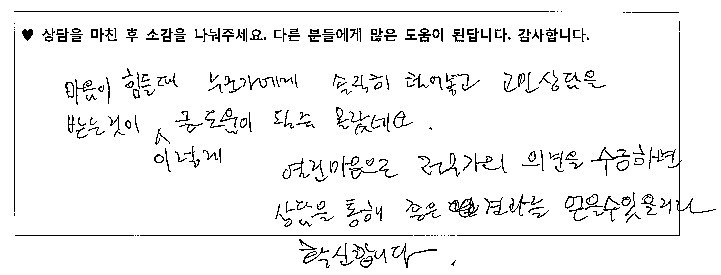 ♥ 상담을 마친 후 소감을 나눠주세요. 다른 분들에게 많은 도움이 된답니다. 감사합니다.
마음이 힘들때 누조가에게 솔직히 털어놓고 고민상담을
받는것이 이렇게 큰도움이 될줄 몰랐네요.
열린마음으로 전문가의 의견을 수긍하면
상담을 통해 좋은 결과를 얻을수있을거라
확신합니다.